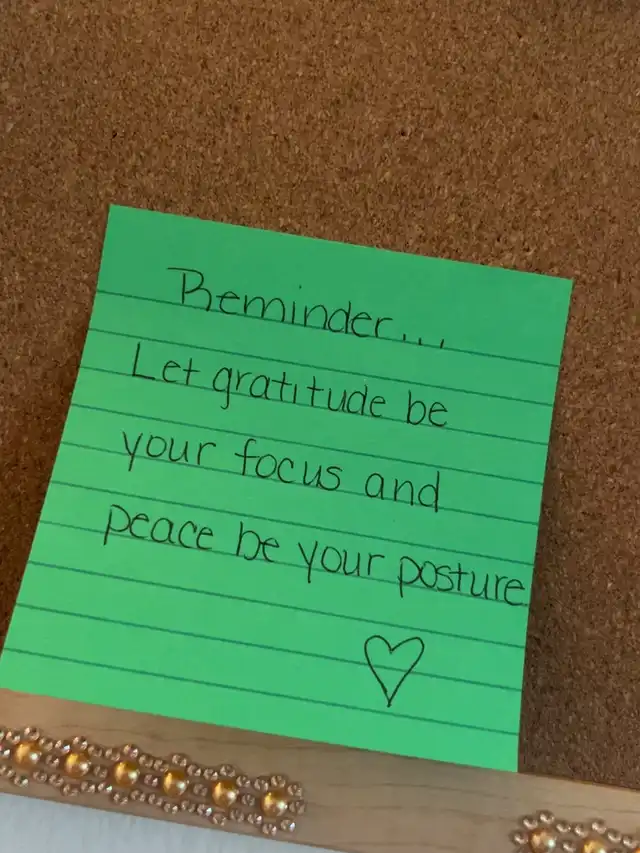 Reminder...
Let gratitude be
your focus and
peace be your posture